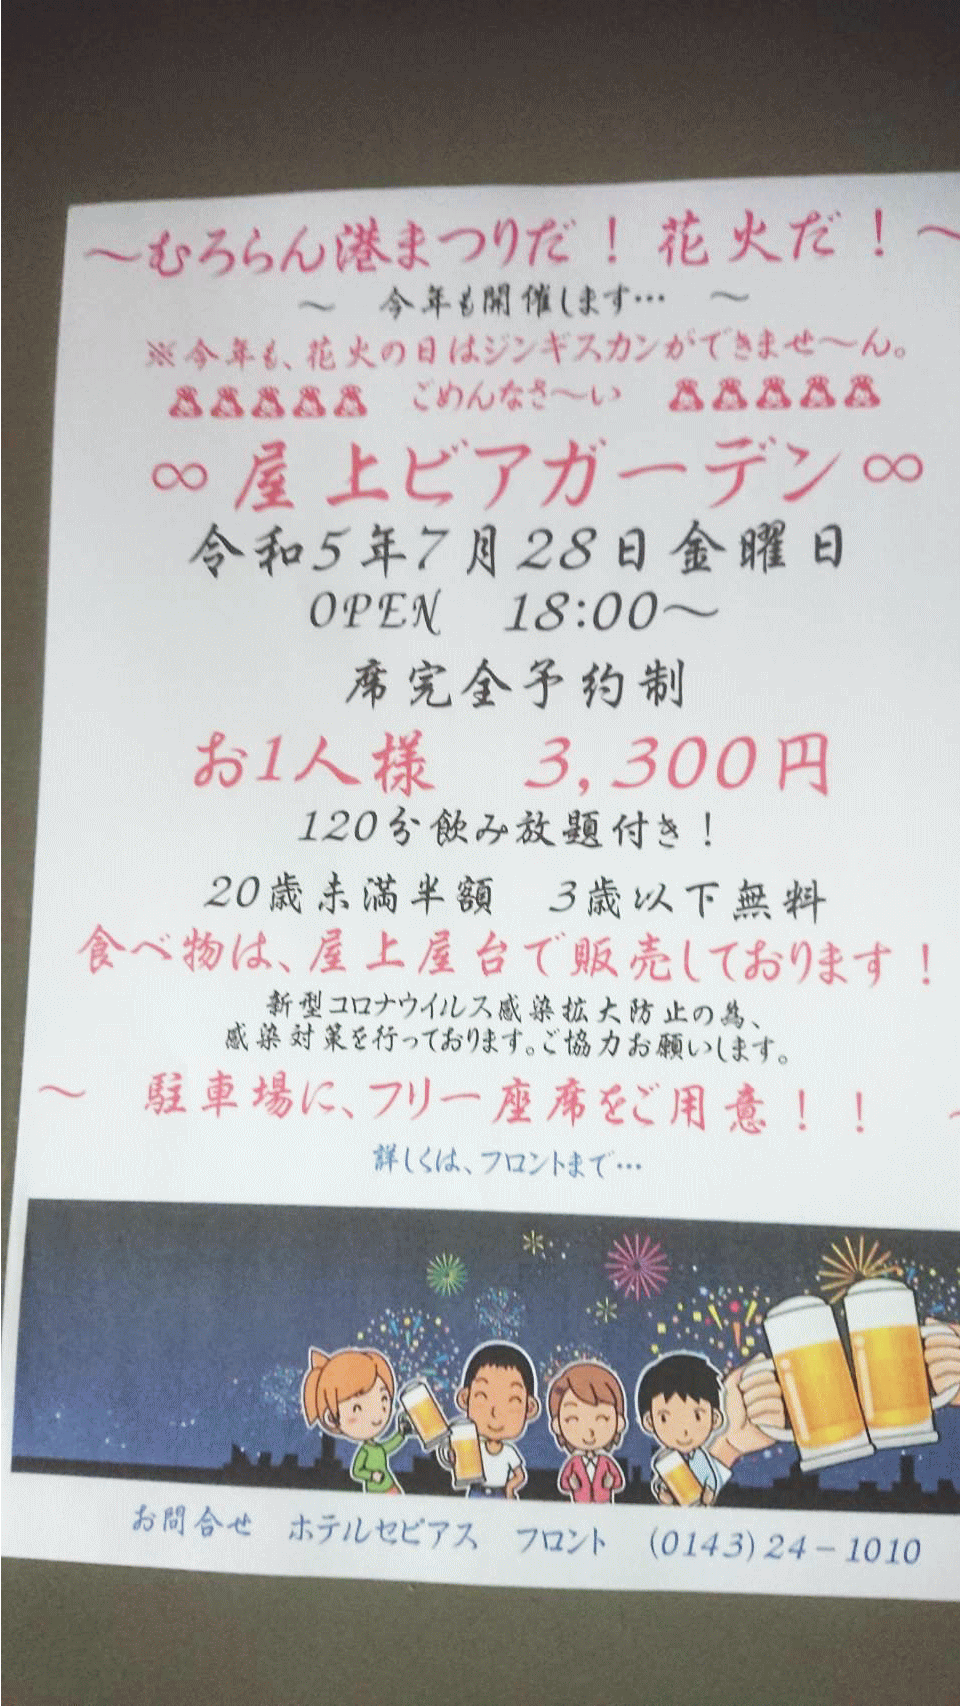 ～むろらん港まつりだ！花火だ！～
～　今年も開催します…　～
※今年も、花火の日はジンギスカンができませ～ん。
ごめんなさ～い
∞屋上ビアガーデン∞
令和5年7月28日金曜日
OPEN　18:00～
席完全予約制
お1人様　3,300円
120分飲み放題付き！
20歳未満半額　3歳以下無料
食べ物は、屋上屋台で販売しております！
新型コロナウイルス感染拡大防止の為、
感染対策を行っております。ご協力お願いします。
～　駐車場に、フリー座席をご用意！！　～
詳しくは、フロントまで…
お問合せ　ホテルセピアス　フロント　(0143)24－1010